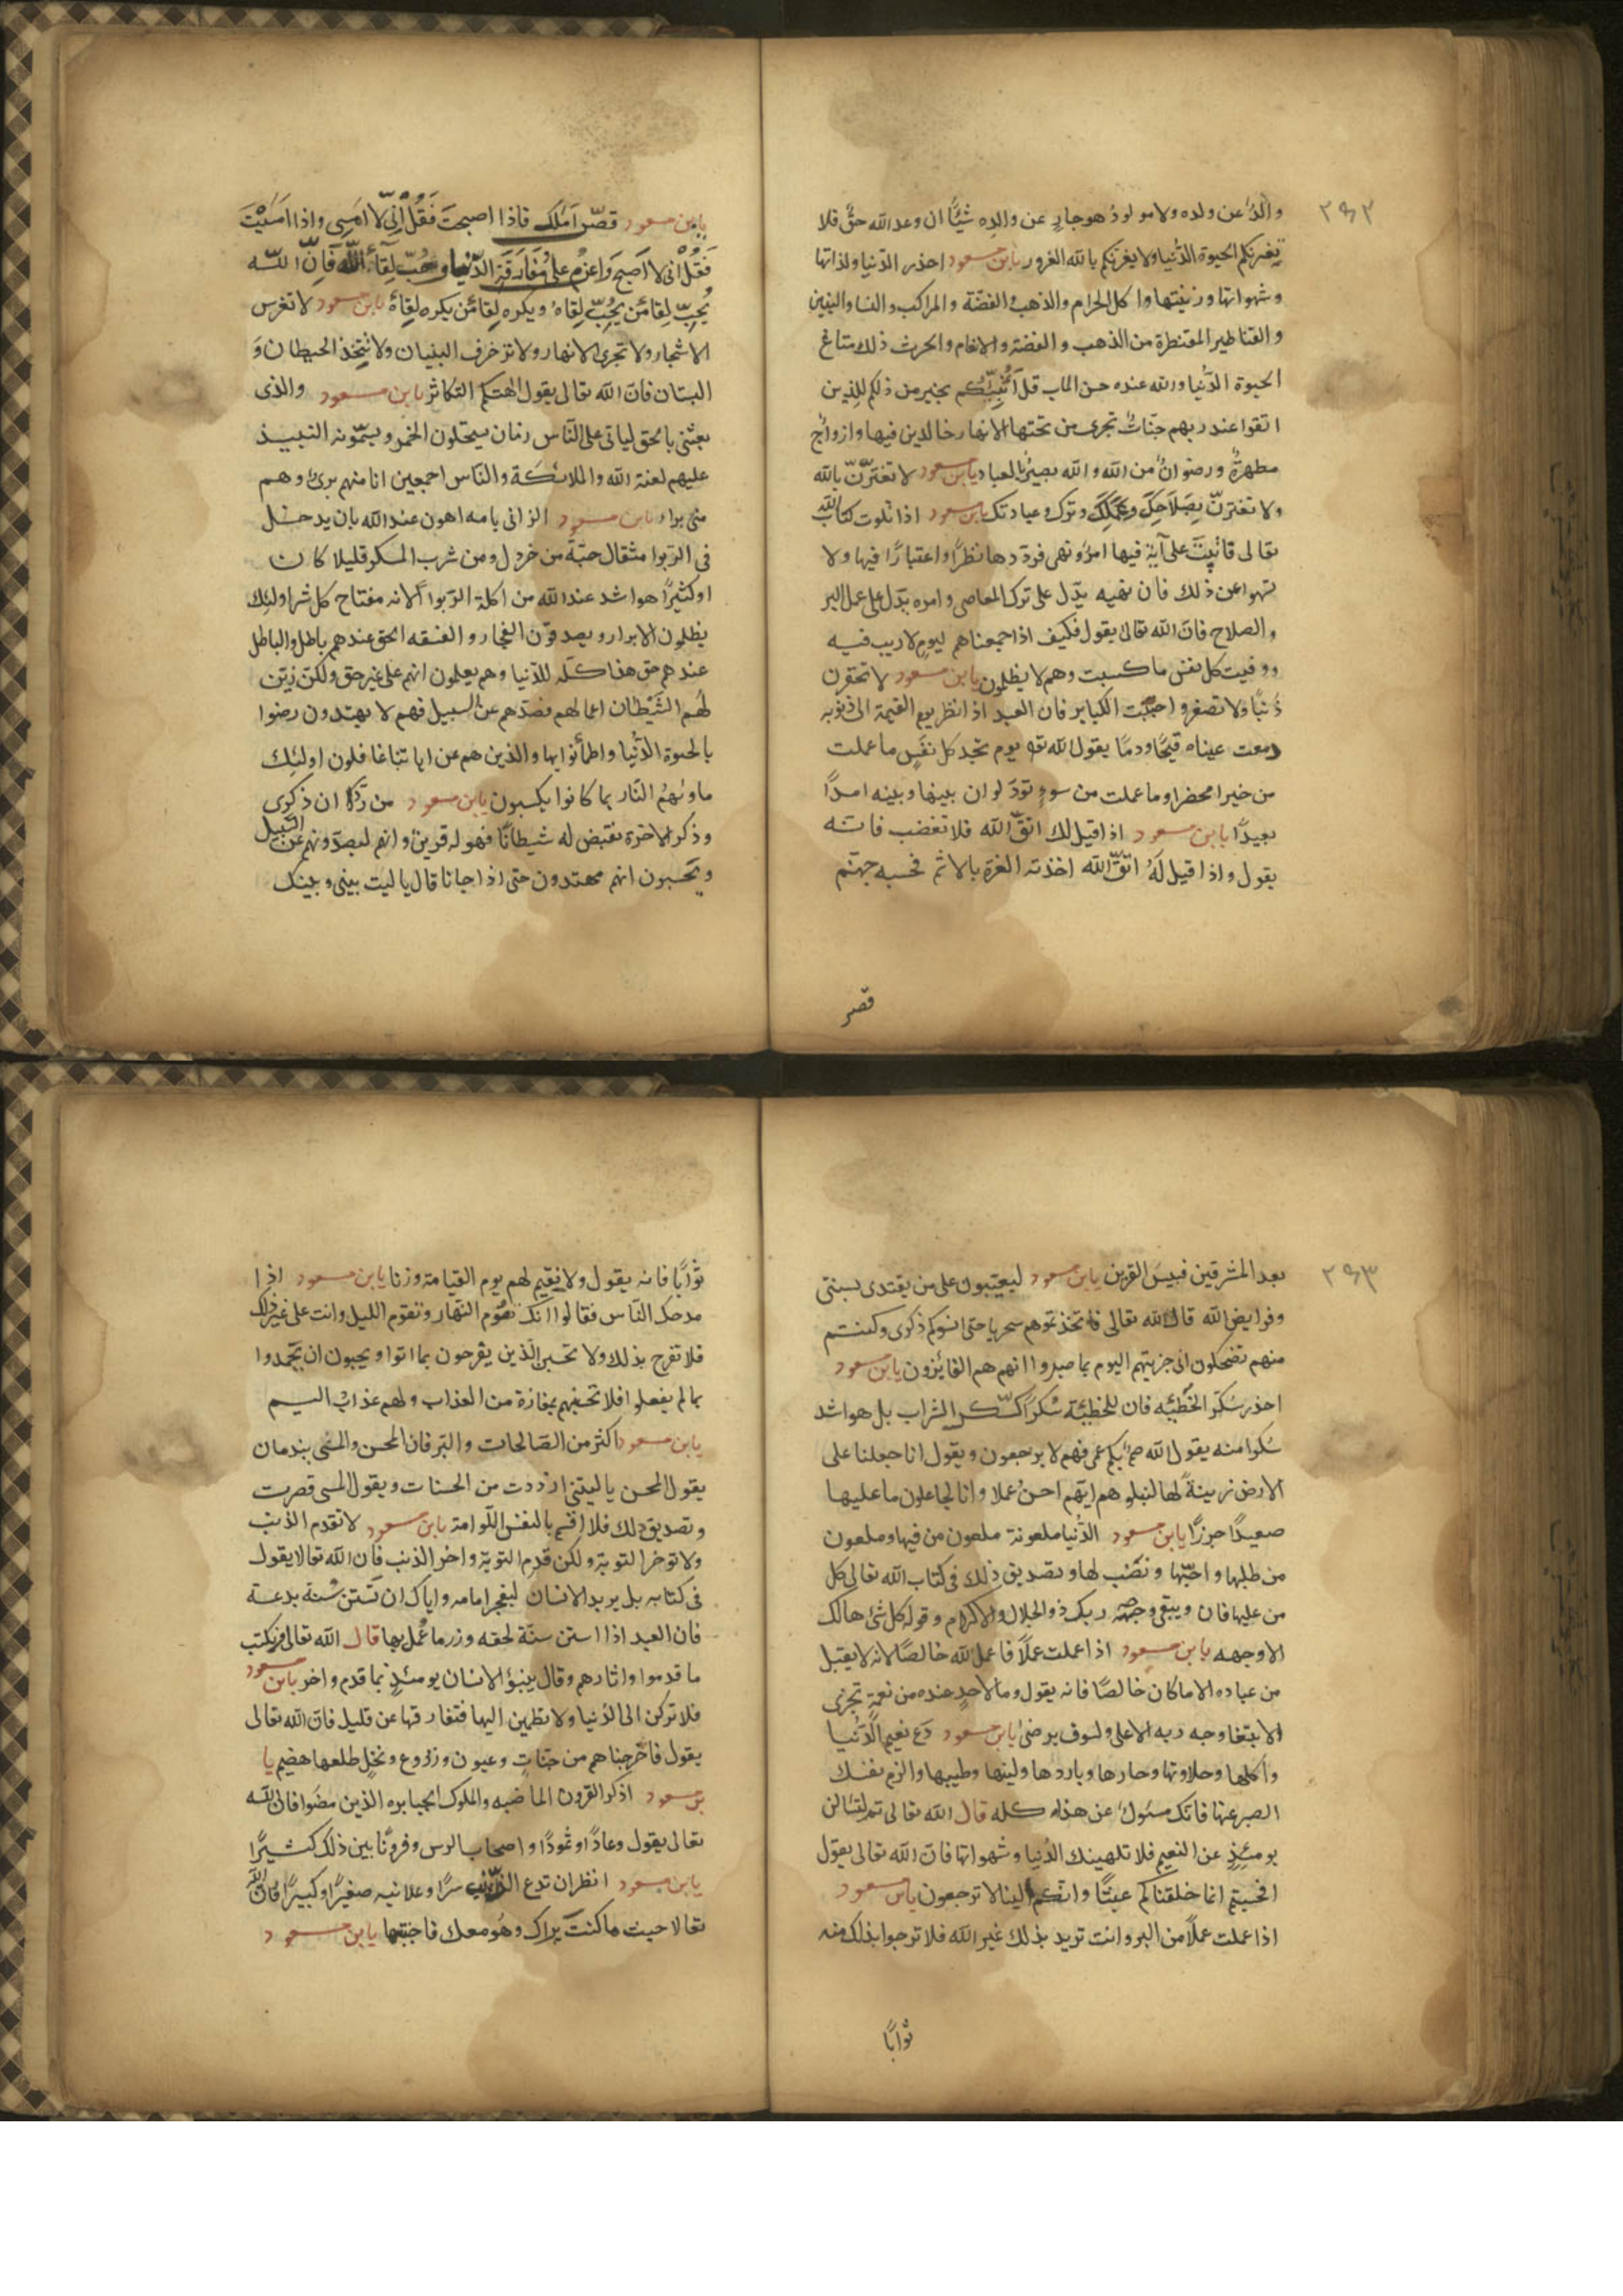 ٢٩٢
والدٌ عن ولده ولا مولودٌ هو جازٍ عن والدِه شيئًا ان وعد الله حقٌّ فلا
تغرنكم الحيوة الدُّنيا ولا يغرنكم بالله الغرور يابن مسعود احذر الدّنيا ولذاتها
وشهواتها وزينتها واكل الحرام والذهب والفضّة والمراكب والنسا والبنين
والقناطير المقنطرة من الذهب والفضة والانعام والحرث ذلك متاع
الحيوة الدُّنيا والله عنده حسن الماب قل اَؤُنَبِّئُكُم بخير من ذلكم للذِين
اتقوا عند ربهم جنّاتٌ تجرى من تحتها الانهار خالدين فيها وازواجٌ
مطهرةٌ ورضوانٌ من الله والله بصيرٌ بالعباد يابن مسعود لا تغترّنّ بالله
ولا تغترنّ بِصَلَاحِكَ وَعَمَلِكَ وترك وعبادتك يابن مسعود اذا تلوت كتاب الله
تعالى فاتيتَ على آيةٍ فيها امرٌ ونهى فردّدها نظرًا واعتبارًا فيها ولا
تسهوا عن ذلك فان نهيه يدّل على ترك المعاصى وامره يدّل على عمل البر
والصلاح فانّ الله تعالى يقول فكيف اذا جمعناهم ليومٍ لا ريب فيه
ووفيت كل نفس ما كسبت وهم لا يظلمون يابن مسعود لا تحقرن
ذنبًا ولا تصغروا جتنبت الكباير فان العبد اذا نظر يوم القيمة الى ذنوبه
دمعت عيناه قيحًا ودمًا يقول الله تع يوم تجد كل نفسٍ ما عملت
من خير امحضرا وما عملت من سوءٍ تودّ لو ان بينها وبينه امدًا
بعيدًا يابن مسعود اذا قيل لك اتقّ الله فلا تغضب فانّه
يقول واذا قيل لهُ اتقّ الله اخذته الغرة بالاثم فحسبه جهنّم
قصر
يابن مسعود قصّر اَمَلك فاذا اصبحتَ فَقُلْ اِنّى لا اَمَسِى واذا امَسَيْتَ
فَقُلْ انى لا اَصبح وَاعزم على مُفَارَقَة الدّنيا وحُبّ لِقآء اللّه فَاِنّ اللّه
يُحِبّ لِقا مَن يُحِبّ لِقاهُ ويكره لِقا مَن يكره لِقاهُ يابن مسعود لا تغرس
الاشجار ولا تجرى الانهار ولا تزخرف البنيان ولا تتخذ الحيطان وَ
البستان فانّ الله تعالى يقول الهٰكم التكاثر يابن مسعود والذى
بعثنى بالحق لياتى على النّاس زمان يستحلون الخمر ويسمّونه النبيذ
عليهم لعنة الله والملائكة والنّاس اجمعين انا منهم برئ وهم
منى براء يابن مسعود الزانى بامه اهون عند الله بان يدخل
فى الرّبوا مثقال حبّة من خردل ومن شرب المسكر قليلا كان
او كثيرًا هو اشد عند الله من اكلة الرّبوا لانه مفتاح كل شر اولئك
يظلمون الابرار ويصدقون الفجار والفسقه الحق عندهم باطل والباطل
عندهم حق هذا كلّه للدّنيا وهم يعلمون انهم على غير حق ولكن زين
لهم الشَّيْطان اعمالهم فصدّهم عن السبيل فهم لا يهتدون رضوا
بالحيوة الدُّنيا واطمأنوا بها والذين هم عن اياتنا غافلون اولئِك
ماوٰهُمُ النّار بما كانوا يكسبون يابن مسعود من ترك ان ذكرى
وذكر الاخرة نقيض له شيطانًا فهو له قرين وانهم ليصدّونهم عن السّبيل
ويحسبون انهم مهتدون حتى اذا جانا قال ياليت بينى وبينك
٢٩٣
بعد المشرقين فبيسَ القرين يابن مسعود ليعيّبون على من يقتدى بسنتى
وفرايض الله قال الله تعالى فاتخذتموهم سخريا حتى انسوكم ذكرى وكنتم
منهم تضحكون انى جزيتهم اليوم بما صبروا انهم هم الفائزون يابن مسعود
احذر سُكرَ الخَطِئه فان للخطئة سُكرًا كسّكر الشراب بل هو اشد
سُكرا منه يقول الله صمٌّ بكم عمى فهم لا يرجعون ويقول انا جعلنا على
الارض زينةً لها لنبلوهم ايّهم احسنُ عملا وانا لجاعلون ما عليها
صعيدًا جرزًا يابن مسعود الدّنيا ملعونة ملعون من فيها وملعون
من طلبها واحبّها ونَصَب لها وتصديق ذلك فى كتاب الله تعالى كل
من عليها فان ويبقى وجه ربك ذو الجلال والاكرام وقوله كل شئ هالك
الا وجهه يابن مسعود اذا عملت عملًا فاعمل لله خالصًا لانه لا يقبل
من عباده الا ما كان خالصًا فانه يقول وما لاحدٍ عنده من نعمةٍ تجزى
الا ابتغا وجه ربه الاعلى ولسوف يرضى يابن مسعود دَع نعيم الدُّنيا
واكلها وحلاوتها وحارها وباردها ولينها وطيبها والزم نفسك
الصبر عنها فانّك مسئولٌ عن هذه كله قال الله تعالى ثم لتسٔالن
يومئذٍ عن النعيم فلا تلهينك الدُنيا وشهواتها فانّ الله تعالى يقول
افحسبتم انما خلقناكم عبثًا وانّكم الينا لا ترجعون يابن مسعود
اذا عملت عملًا من البر وانت تريد بذلك غير الله فلا ترجوا بذلك منه
ثوابًا
ثوابًا فانه يقول ولا نقيم لهم يوم القيامة وزنا يابن مسعود اذا
مدحك النّاس فقالوا انك تصُوم النّهار وتقوم الليل وانت على غير ذلك
فلا تفرح بذلك ولا تحسبن الّذين يفرحون بما اتوا ويحبون ان يُحمدوا
بما لم يفعلوا فلا تحسبنهم بمفازة من العذاب ولهم عذابٌ اليم
يابن مسعود اكثر من الصّالحات والبّر فان المحسن والمسى يندمان
يقول المحسن ياليتنى ازددت من الحسنات ويقول المسى قصرت
وتصديق ذلك فلا اقسم بالنفس اللّوامة يابن مسعود لا تقدم الذنب
ولا توخر التوبة ولكن قدم التوبة واخر الذنب فان الله تعالا يقول
فى كتابه بل يريد الانسان ليفجر امامه واياك ان تَستن سُنة بدعة
فان العبد اذا استن سنّة لحقه وزر ما عُمل بها قال الله تعالى ونكتب
ما قدموا واثارهم وقال ينبؤ الانسان يومئذٍ بما قدم واخر يابن مسعود
فلا تركن الى الدُنيا ولا تطمين اليها فتفارقها عن قليل فانّ الله تعالى
يقول فاخرجناهم من جنّاتٍ وعيون وزروع ونخلٍ طلعها هضيم يا
بن مسعود اذكر القرون الماضيه والملوك الجبابره الذين مضَوا فان اللّه
تعالى يقول وعادًا وثمودًا واصحاب الرس وقرونًا بين ذلك كثيرًا
يابن مسعود انظر ان تدع الذّنب سرًا وعلانيه صغيرًا وكبيرًا فانّ الله
تعالا حيث ما كنتَ يراك وهُو معك فاجتنبها يابن مسعود